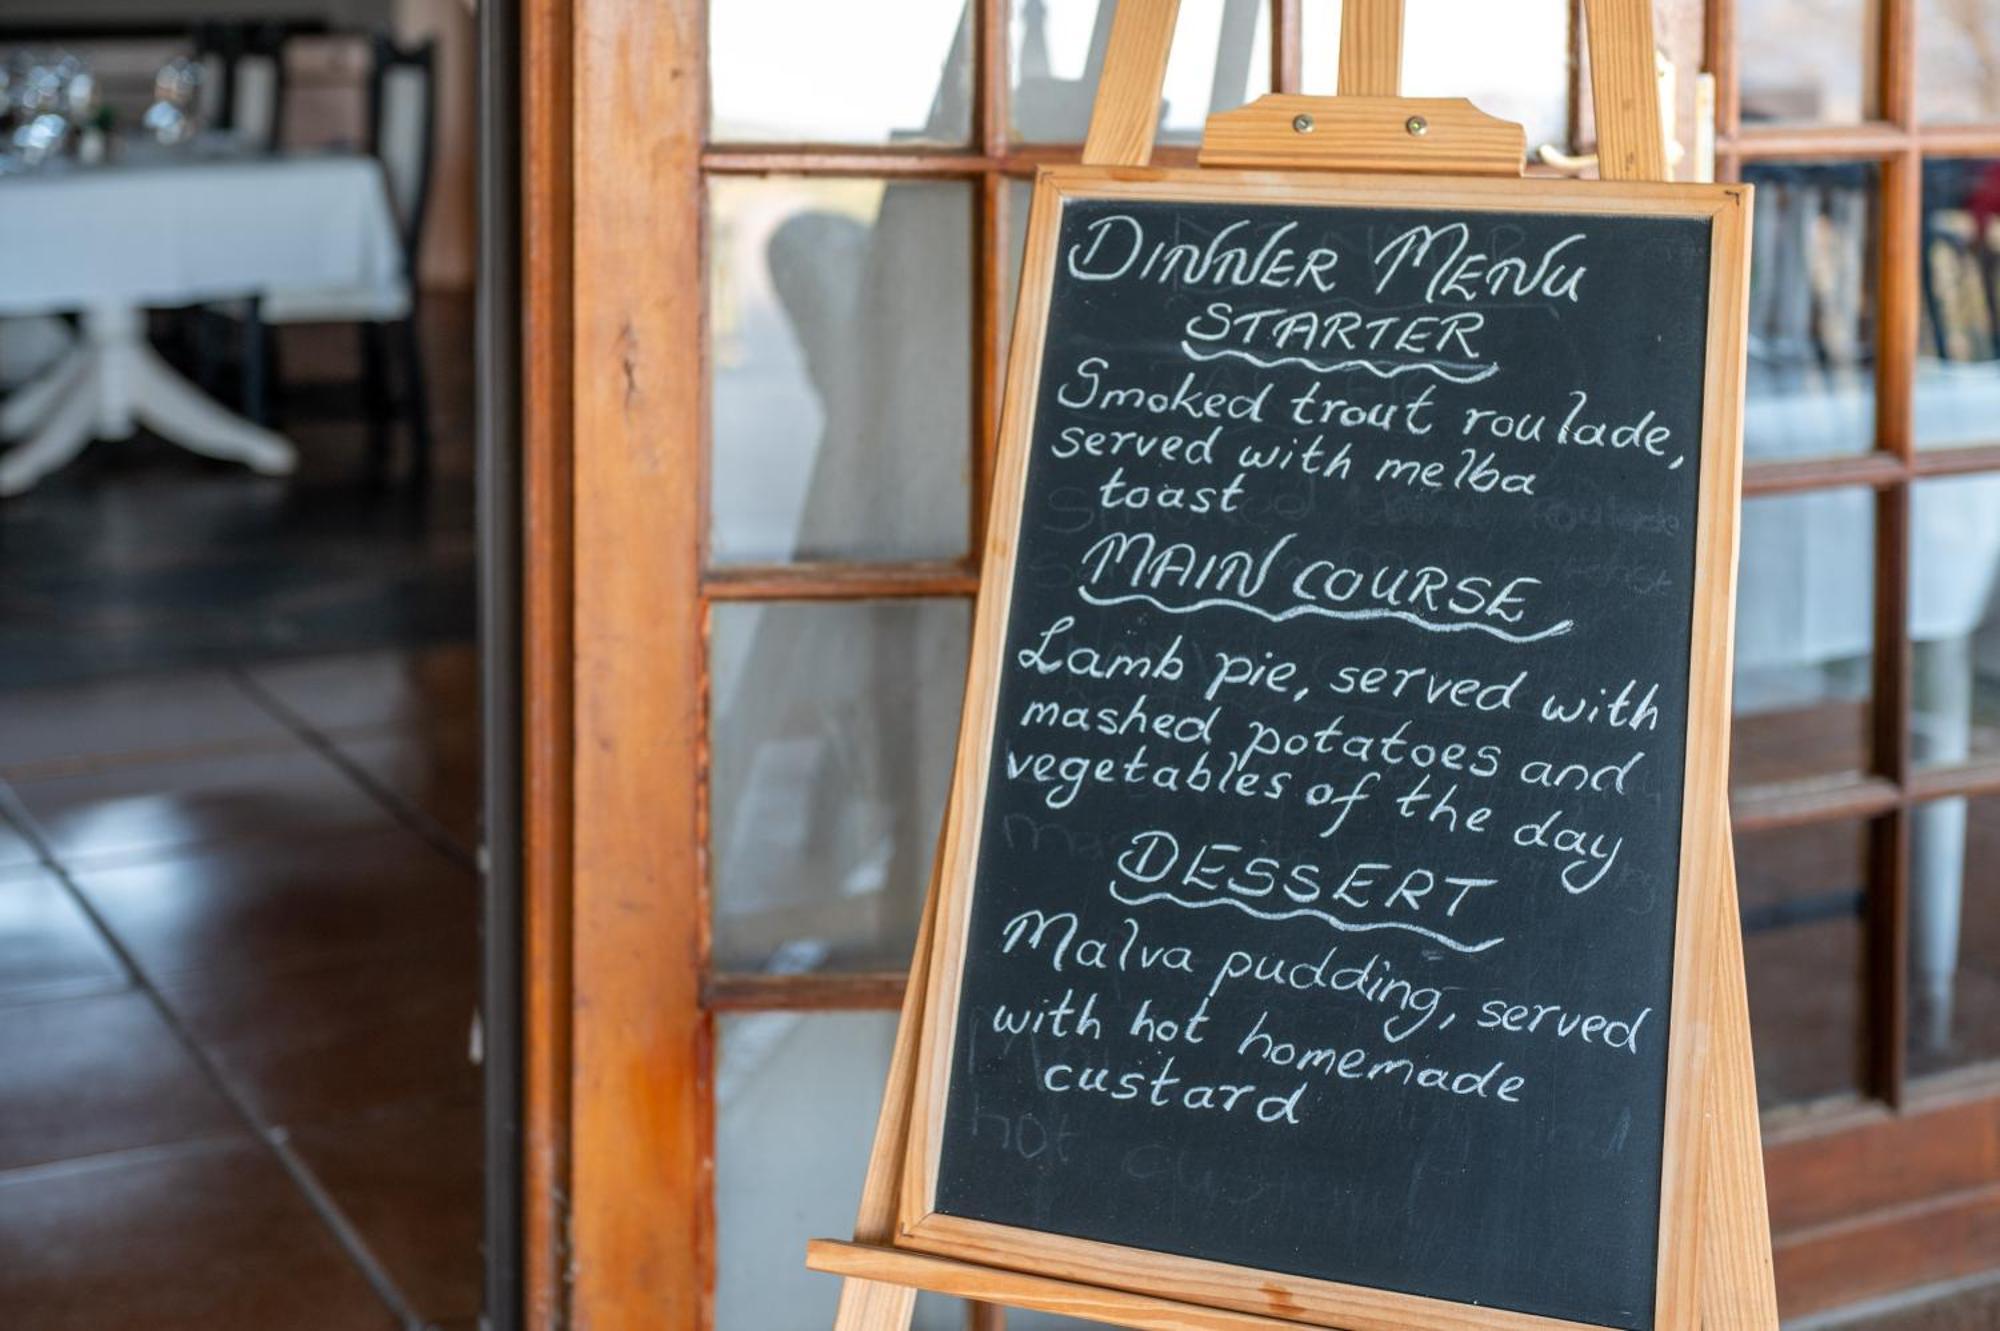 DINNER MENU
STARTER
Smoked trout roulade,
served with melba
toast
MAIN COURSE
Lamb pie, served with
mashed potatoes and
vegetables of the day
DESSERT
Malva pudding, served
with hot homemade
custard